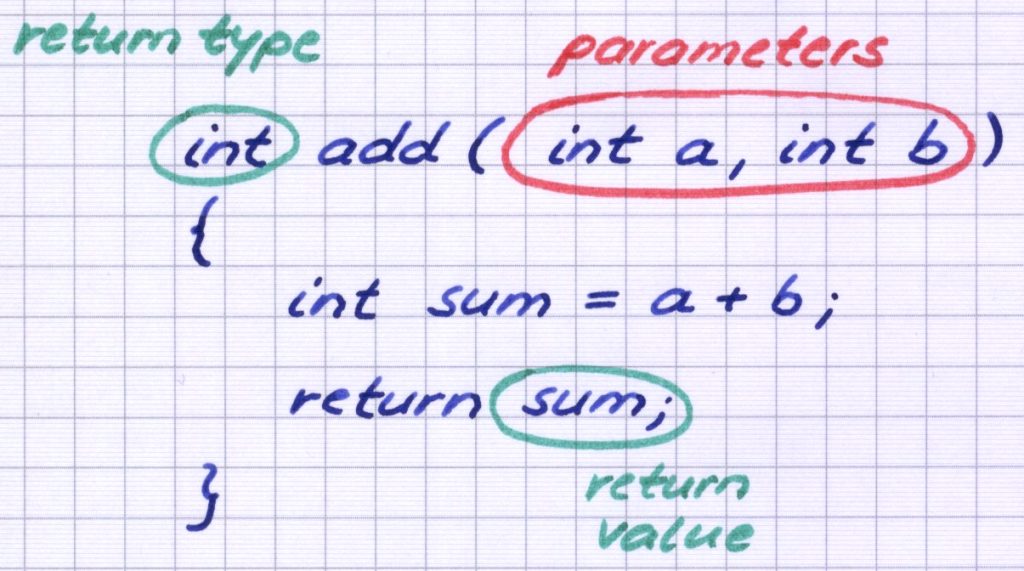 return type
parameters
int add ( int a, int b )
{
int sum = a + b;
return sum;
}
return
value